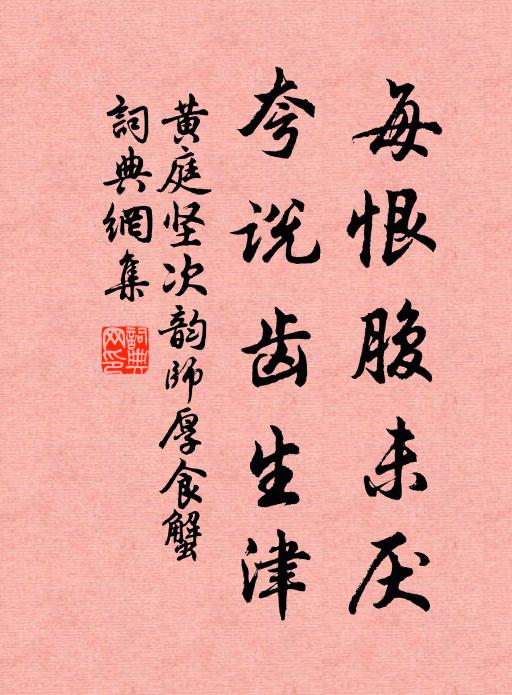 每恨腹未厌
夸说齿生津
黄庭坚次韵師厚食蟹
詞典網集
詞典网印